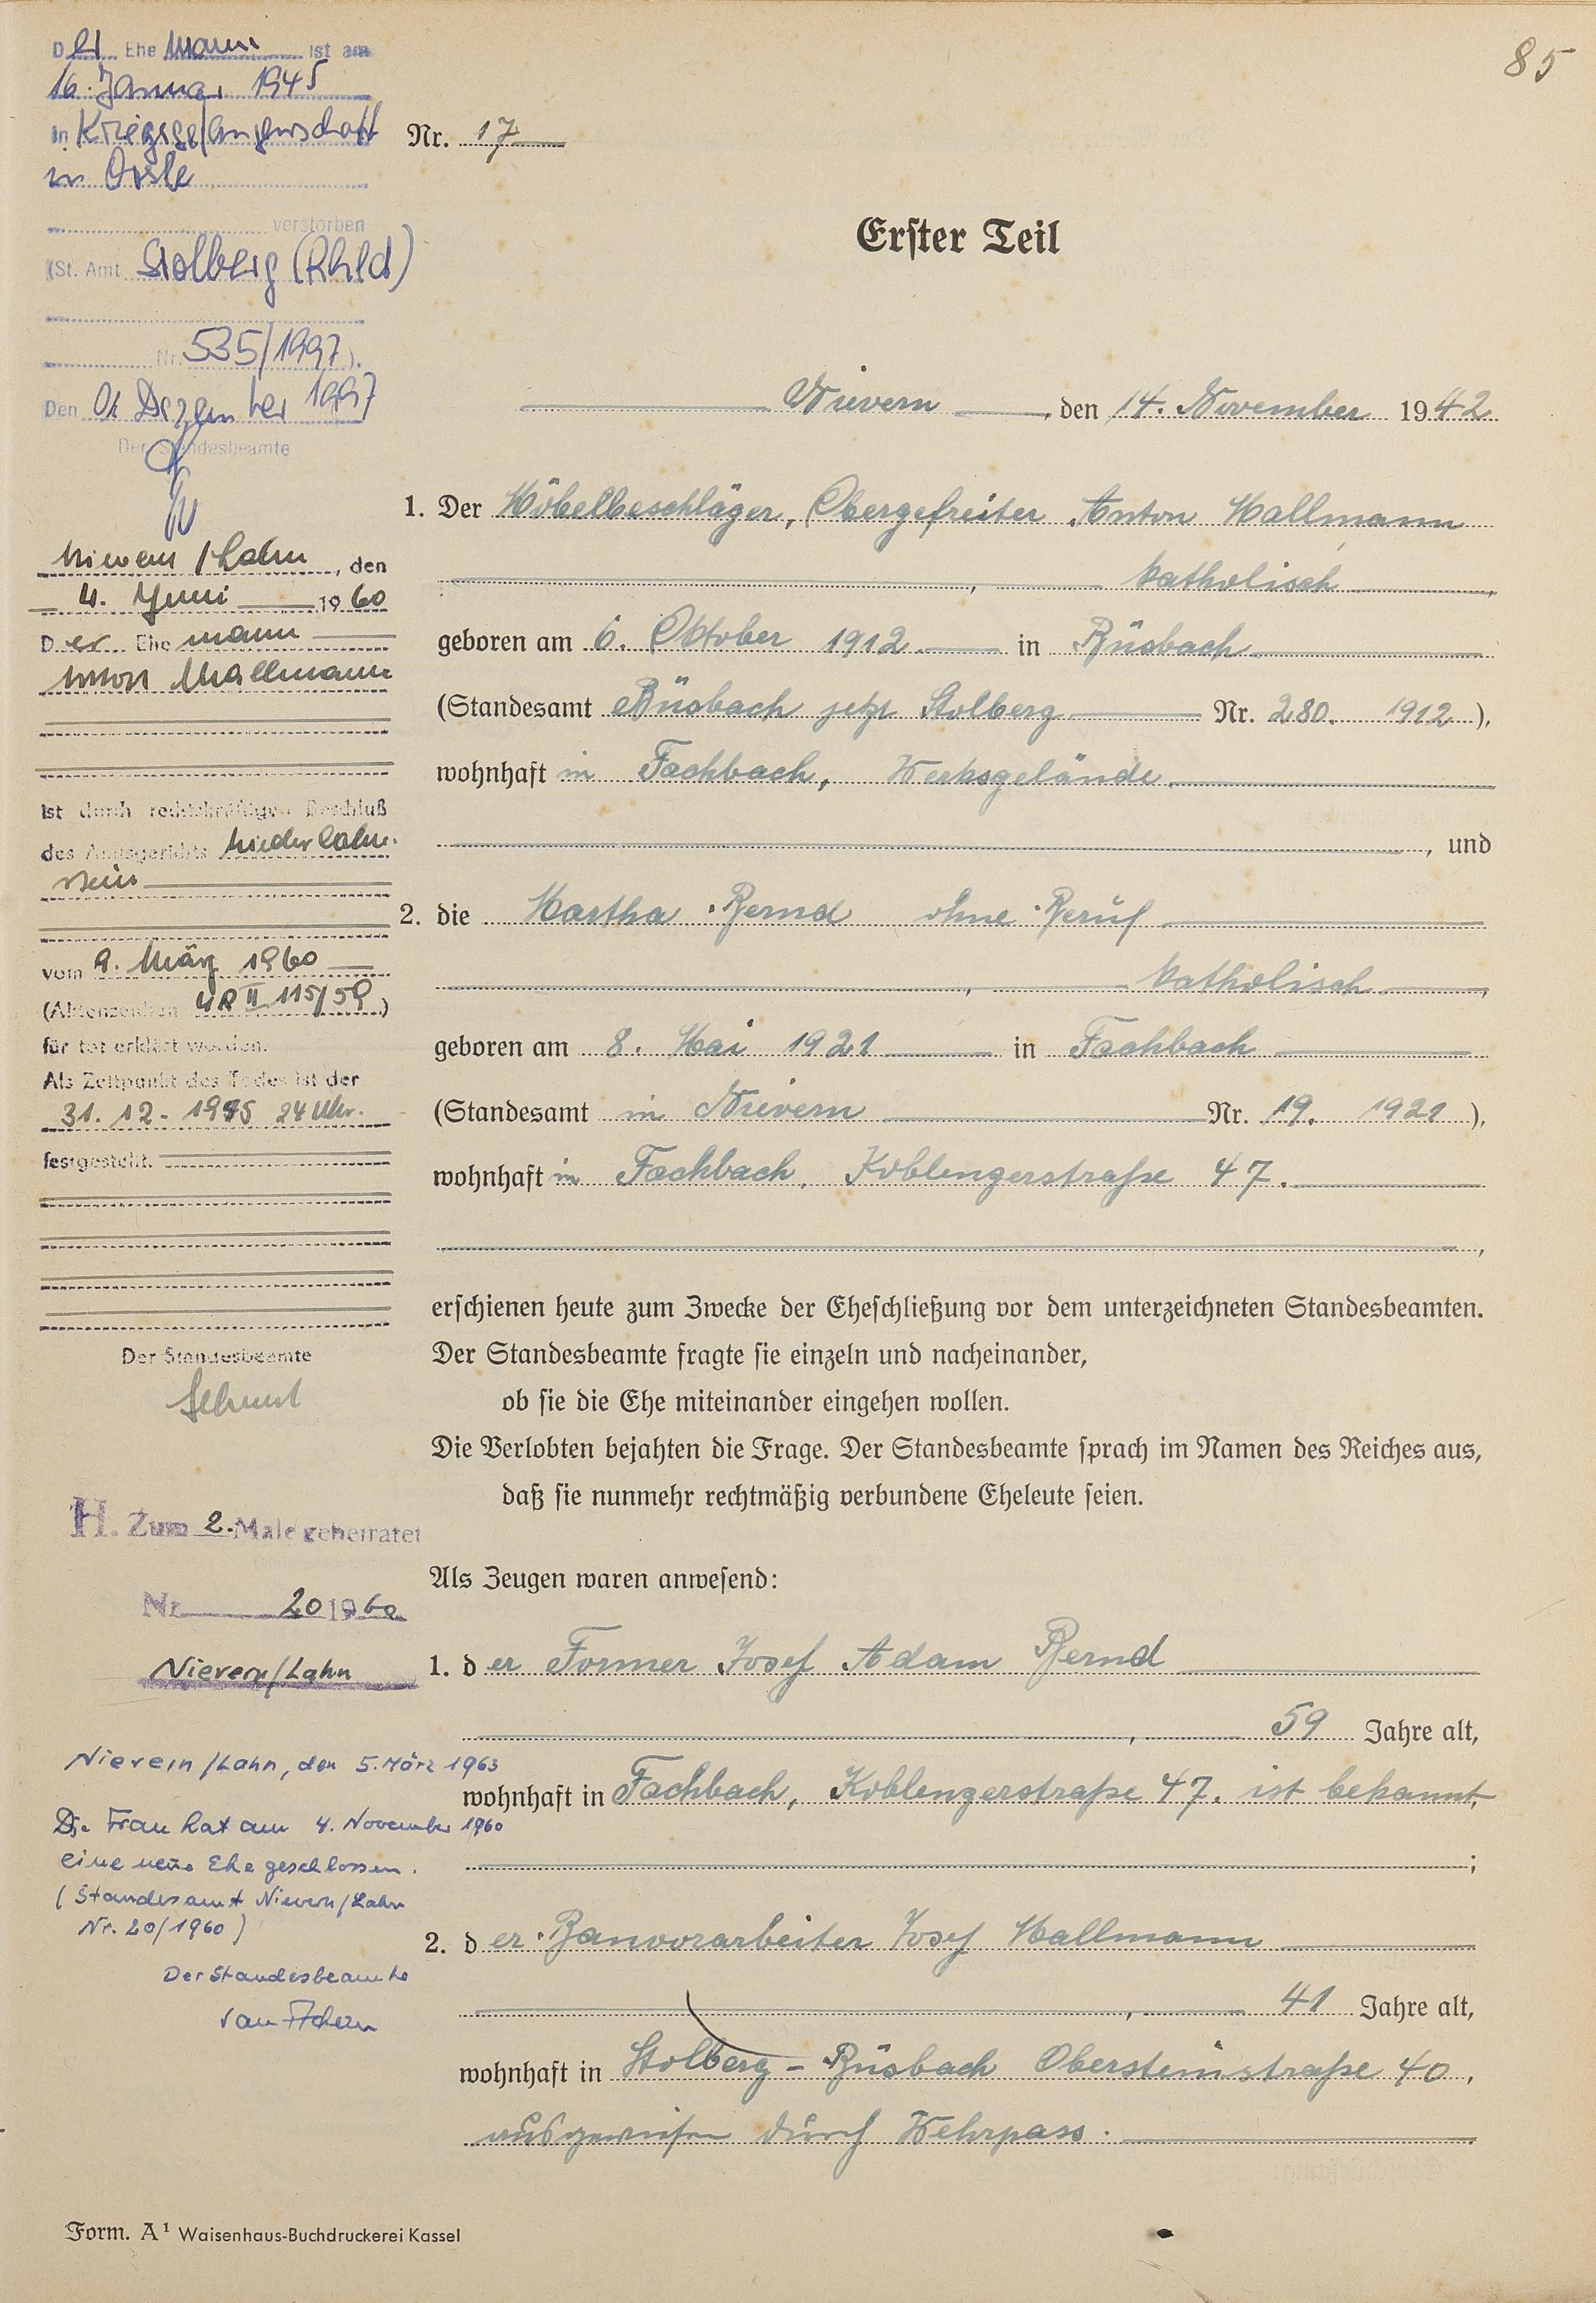 85
Der Ehe mann ist am
16. Januar 1945
in Kriegsgefangenschaft
in Orsk
verstorben
(St. Amt Stolberg (Rhld)
Nr. 535/1997).
Den Dezember 1997
Der Standesbeamte
Nievern / Lahn, den
4. Juni 1960
Der Ehemann
Anton Mallmann
ist durch rechtskräftigen Beschluß
des Amtsgerichts Niederlahn-
stein
vom 9. März 1960
(Aktenzeichen 4 R II 115/59)
für tot erklärt worden.
Als Zeitpunkt des Todes ist der
31. 12. 1945 24 Uhr.
festgestellt.
Der Standesbeamte
H. Zum 2. Male geheiratet
Nr. 20 1960
Nievern/Lahn
Nievern/Lahn, den 5. März 1963
Die Frau hat am 4. November 1960
eine neue Ehe geschlossen.
(Standesamt Nievern/Lahn
Nr. 20/1960)
Der Standesbeamte
Nr. 17
Erster Teil
Nievern, den 14. November 1942
1. Der Möbelbeschläger, Obergefreiter Anton Mallmann
, katholisch,
geboren am 6. Oktober 1912 in Büsbach
(Standesamt Büsbach jetzt Stolberg Nr. 280. 1912),
wohnhaft in Fachbach, Werksgelände.
, und
2. die Martha Bernd ohne Beruf
, katholisch,
geboren am 8. Mai 1921 in Fachbach
(Standesamt in Nievern Nr. 19. 1921),
wohnhaft in Fachbach, Koblenzerstraße 47.
,
erschienen heute zum Zwecke der Eheschließung vor dem unterzeichneten Standesbeamten.
Der Standesbeamte fragte sie einzeln und nacheinander,
ob sie die Ehe miteinander eingehen wollen.
Die Verlobten bejahten die Frage. Der Standesbeamte sprach im Namen des Reiches aus,
daß sie nunmehr rechtmäßig verbundene Eheleute seien.
Als Zeugen waren anwesend:
1. der Former Josef Adam Bernd
, 59 Jahre alt,
wohnhaft in Fachbach, Koblenzerstraße 47. ist bekannt,
;
2. der Bauvorarbeiter Josef Mallmann
, 41 Jahre alt,
wohnhaft in Stolberg - Büsbach Obersteinstraße 40,
ausgewiesen durch Wehrpass.
Form. A¹ Waisenhaus-Buchdruckerei Kassel